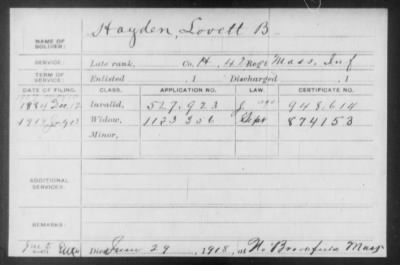 Hayden, Lovett B.
NAME OF SOLDIER:
SERVICE: Late rank, Co. H, 47 Reg't Mass. Inf
TERM OF SERVICE: Enlisted , 1 Discharged , 1
DATE OF FILING. CLASS. APPLICATION NO. LAW. CERTIFICATE NO.
1884 Dec 12 Invalid, 527.923 948.614
Widow, 1123 306 874153
Minor,
ADDITIONAL SERVICES:
REMARKS:
Died June 29, 1918, at N. Brookfield Mass